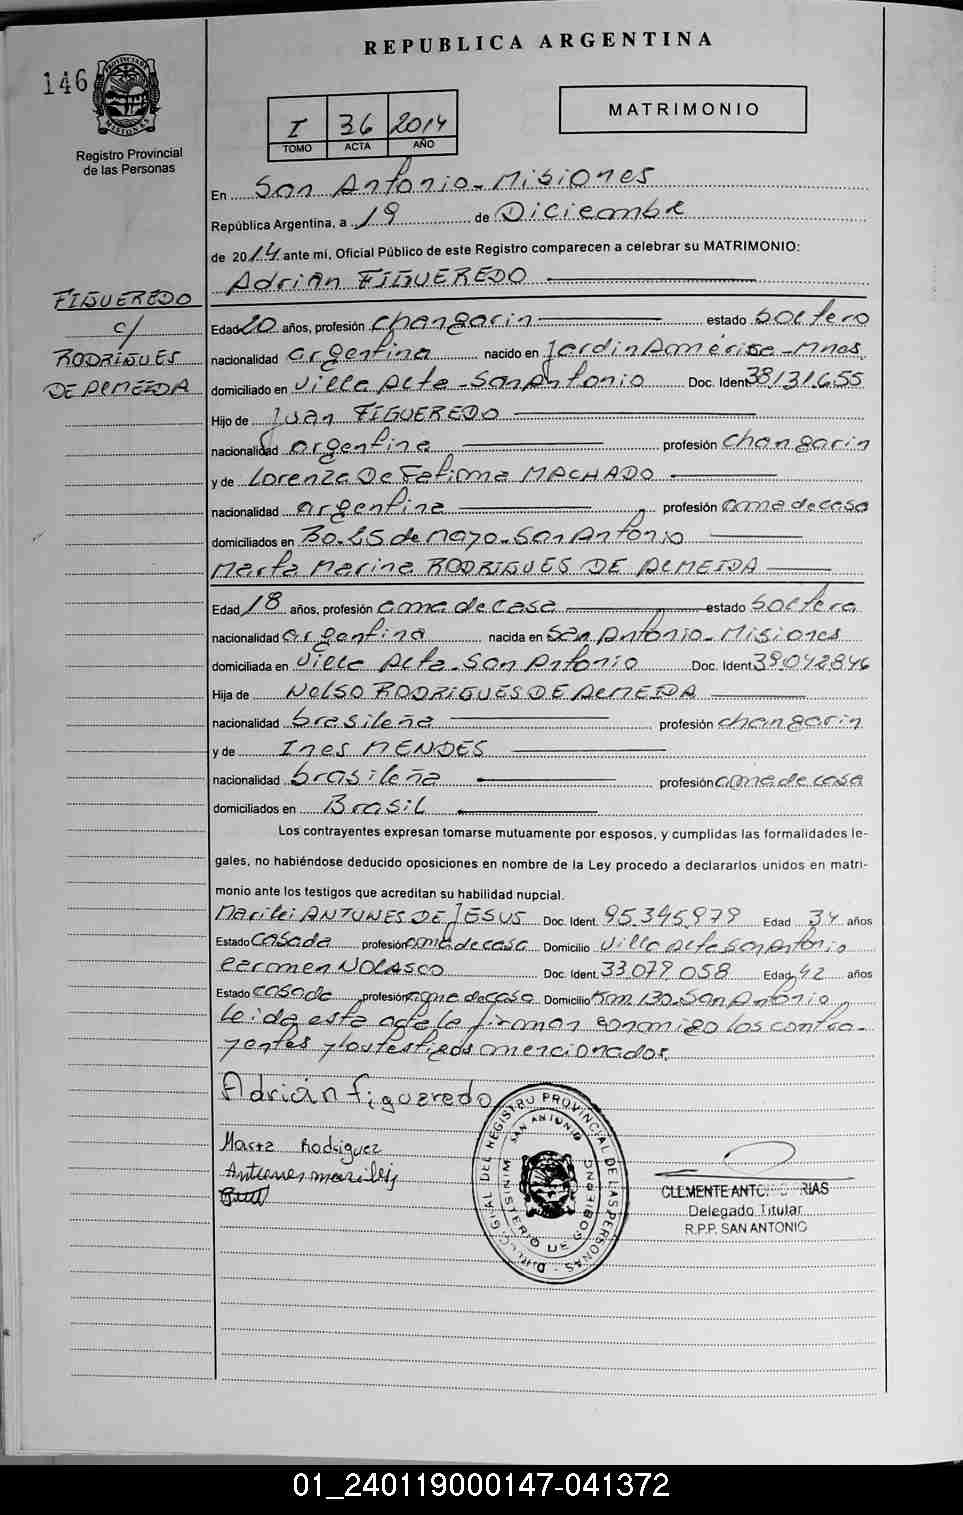 REPUBLICA ARGENTINA
146
PROVINCIA DE MISIONES
Registro Provincial
de las Personas
I 36 2014
TOMO ACTA AÑO
MATRIMONIO
En San Antonio - Misiones
República Argentina, a 19 de Diciembre
de 2014 ante mi, Oficial Público de este Registro comparecen a celebrar su MATRIMONIO:
Adrián FIGUEREDO
FIGUEREDO
c/
RODRIGUES
DE ALMEIDA
Edad 20 años, profesión changarin estado Soltero
nacionalidad argentina nacido en Jardin América - Mnes.
domiciliado en Villa Alta - San Antonio Doc. Ident 38131655
Hijo de Juan FIGUEREDO
nacionalidad argentina profesión changarin
y de Lorenza De Fatima MACHADO
nacionalidad argentina profesión ama de casa
domiciliados en Bo. 25 de Mayo - San Antonio
Marta Marina RODRIGUES DE ALMEIDA
Edad 18 años, profesión ama de casa estado Soltera
nacionalidad argentina nacida en San Antonio - Misiones
domiciliada en Villa Alta - San Antonio Doc. Ident 39042846
Hija de Nelso RODRIGUES DE ALMEIDA
nacionalidad brasileña profesión changarin
y de Ines MENDES
nacionalidad brasileña profesión ama de casa
domiciliados en Brasil
Los contrayentes expresan tomarse mutuamente por esposos, y cumplidas las formalidades le-
gales, no habiéndose deducido oposiciones en nombre de la Ley procedo a declararlos unidos en matri-
monio ante los testigos que acreditan su habilidad nupcial.
Marilei ANTUNES DE JESUS Doc. Ident. 95.345.979 Edad 34 años
Estado Casada profesión ama de casa Domicilio Villa Alta San Antonio
Carmen NOLASCO Doc. Ident. 33.079.058 Edad 42 años
Estado casada profesión ama de casa Domicilio Km 130 - San Antonio
Leida esta acta la firman conmigo los contra-
yentes y los testigos mencionados.
Adrián Figueredo
Marta Rodriguez
Antunes marilei
DIREC. GRAL. DEL REGISTRO PROVINCIAL DE LAS PERSONAS
SAN ANTONIO
MINISTERIO DE GOBIERNO
CLEMENTE ANTONIO ARIAS
Delegado Titular
R.P.P. SAN ANTONIO
01_240119000147-041372